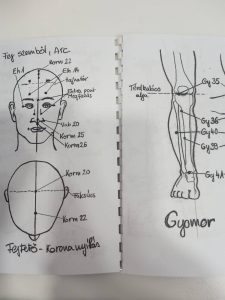 Fej szemből, Arc
Korm 22
Eh 1
Eh 14
Extra pont
Vab 20
Korm 25
Korm 26
Korm 20
Fülcsúcs
Korm 22
Fejtető - Koronanyílás
Térdkalács
alja
Gy 35
Gy 36
Gy 40
Gy 39
Gy 41
Gyomor